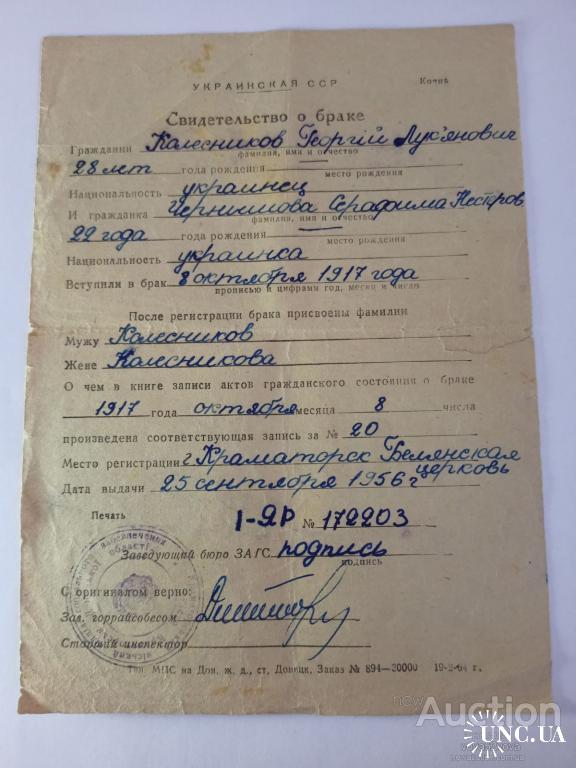 УКРАИНСКАЯ ССР Копия
Свидетельство о браке
Гражданин Колесников Георгій Лук'янович
фамилия, имя и отчество
28 лет года рождения место рождения
Национальность украинец
И гражданка Чернишова Серафима Нестеров
фамилия, имя и отчество
22 года года рождения место рождения
Национальность украинка
Вступили в брак 8 октября 1917 года
прописью и цифрами год, месяц и число
После регистрации брака присвоены фамилии
Мужу Колесников
Жене Колесникова
О чем в книге записи актов гражданского состояния о браке
1917 года октября месяца 8 числа
произведена соответствующая запись за № 20
Место регистрации г Краматорск Белянская
церковь
Дата выдачи 25 сентября 1956 г
Печать I-ЯР № 172203
Заведующий бюро ЗАГС подпись
подпись
С оригиналом верно:
Зав. горрайсобесом
Старший инспектор
Тип МПС на Дон. ж. д., ст. Донецк. Заказ № 894—30000 19-2-64 г.
new
Auction
UNC.UA